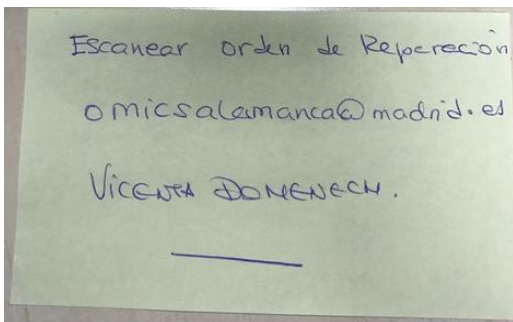 Escanear orden de Reperación
omicsalamanca@madrid.es
VICENTA DOMENECH.